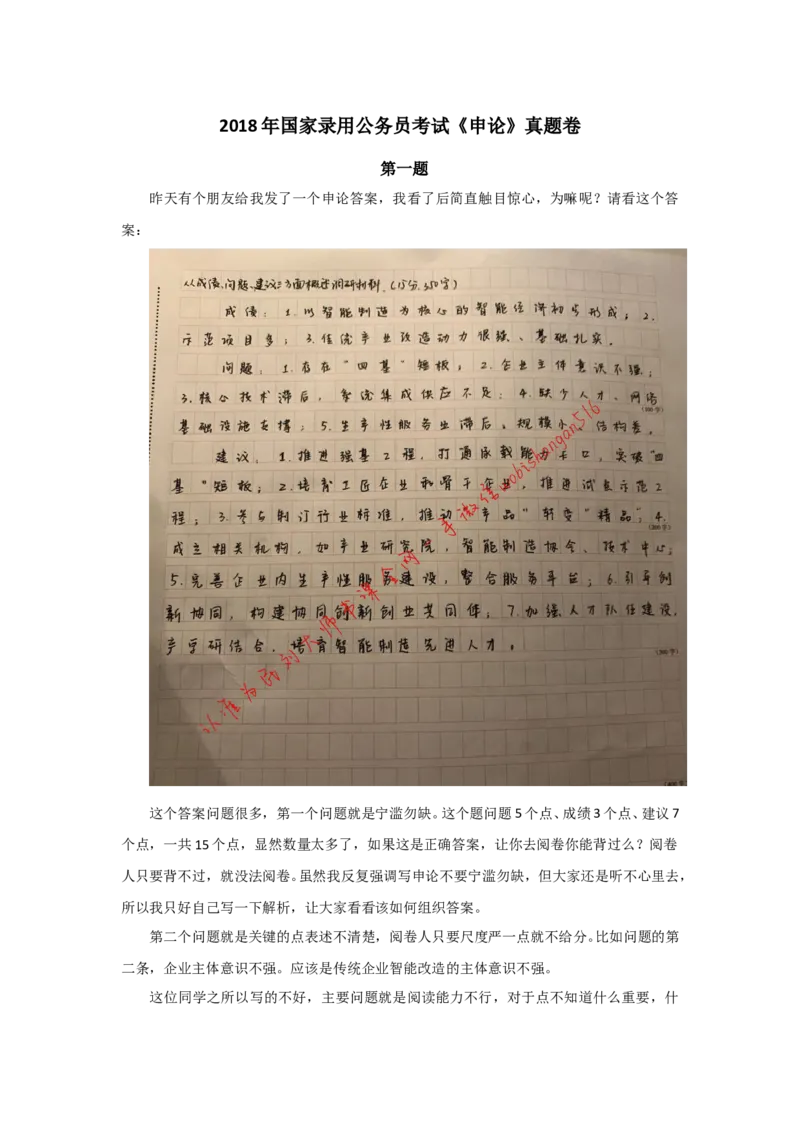 2018年国家录用公务员考试《申论》真题卷
第一题
昨天有个朋友给我发了一个申论答案，我看了后简直触目惊心，为嘛呢？请看这个答
案：
从成绩、问题、建议三方面概述调研材料。(15分.350字)
成绩：1.以智能制造为核心的智能经济初步形成；2.
示范项目多；3.传统产业改造动力很强、基础扎实。
问题：1.存在"四基"短板；2.企业主体意识不强；
3.核心技术滞后，系统集成供应不足；4.缺少人才、网络
(100字)
基础设施支撑；5.生产性服务业滞后，规模小、结构差。
建议：1.推进强基工程，打通承载能力卡口，突破"四
基"短板；2.培育工匠企业和骨干企业，推进试点示范工
程；3.参与制订行业标准，推动"产品"转变"精品"；4.
(200字)
成立相关机构，如产业研究院，智能制造协会、技术中心；
5.完善企业内生产性服务建设，整合服务平台；6.引导创
新协同，构建协同创新创业共同体；7.加强人才队伍建设，
产学研结合，培育智能制造先进人才。
(300字)
这个答案问题很多，第一个问题就是宁滥勿缺。这个题问题5个点、成绩3个点、建议7
个点，一共15个点，显然数量太多了，如果这是正确答案，让你去阅卷你能背过么？阅卷
人只要背不过，就没法阅卷。虽然我反复强调写申论不要宁滥勿缺，但大家还是听不心里去，
所以我只好自己写一下解析，让大家看看该如何组织答案。
第二个问题就是关键的点表述不清楚，阅卷人只要尺度严一点就不给分。比如问题的第
二条，企业主体意识不强。应该是传统企业智能改造的主体意识不强。
这位同学之所以写的不好，主要问题就是阅读能力不行，对于点不知道什么重要，什